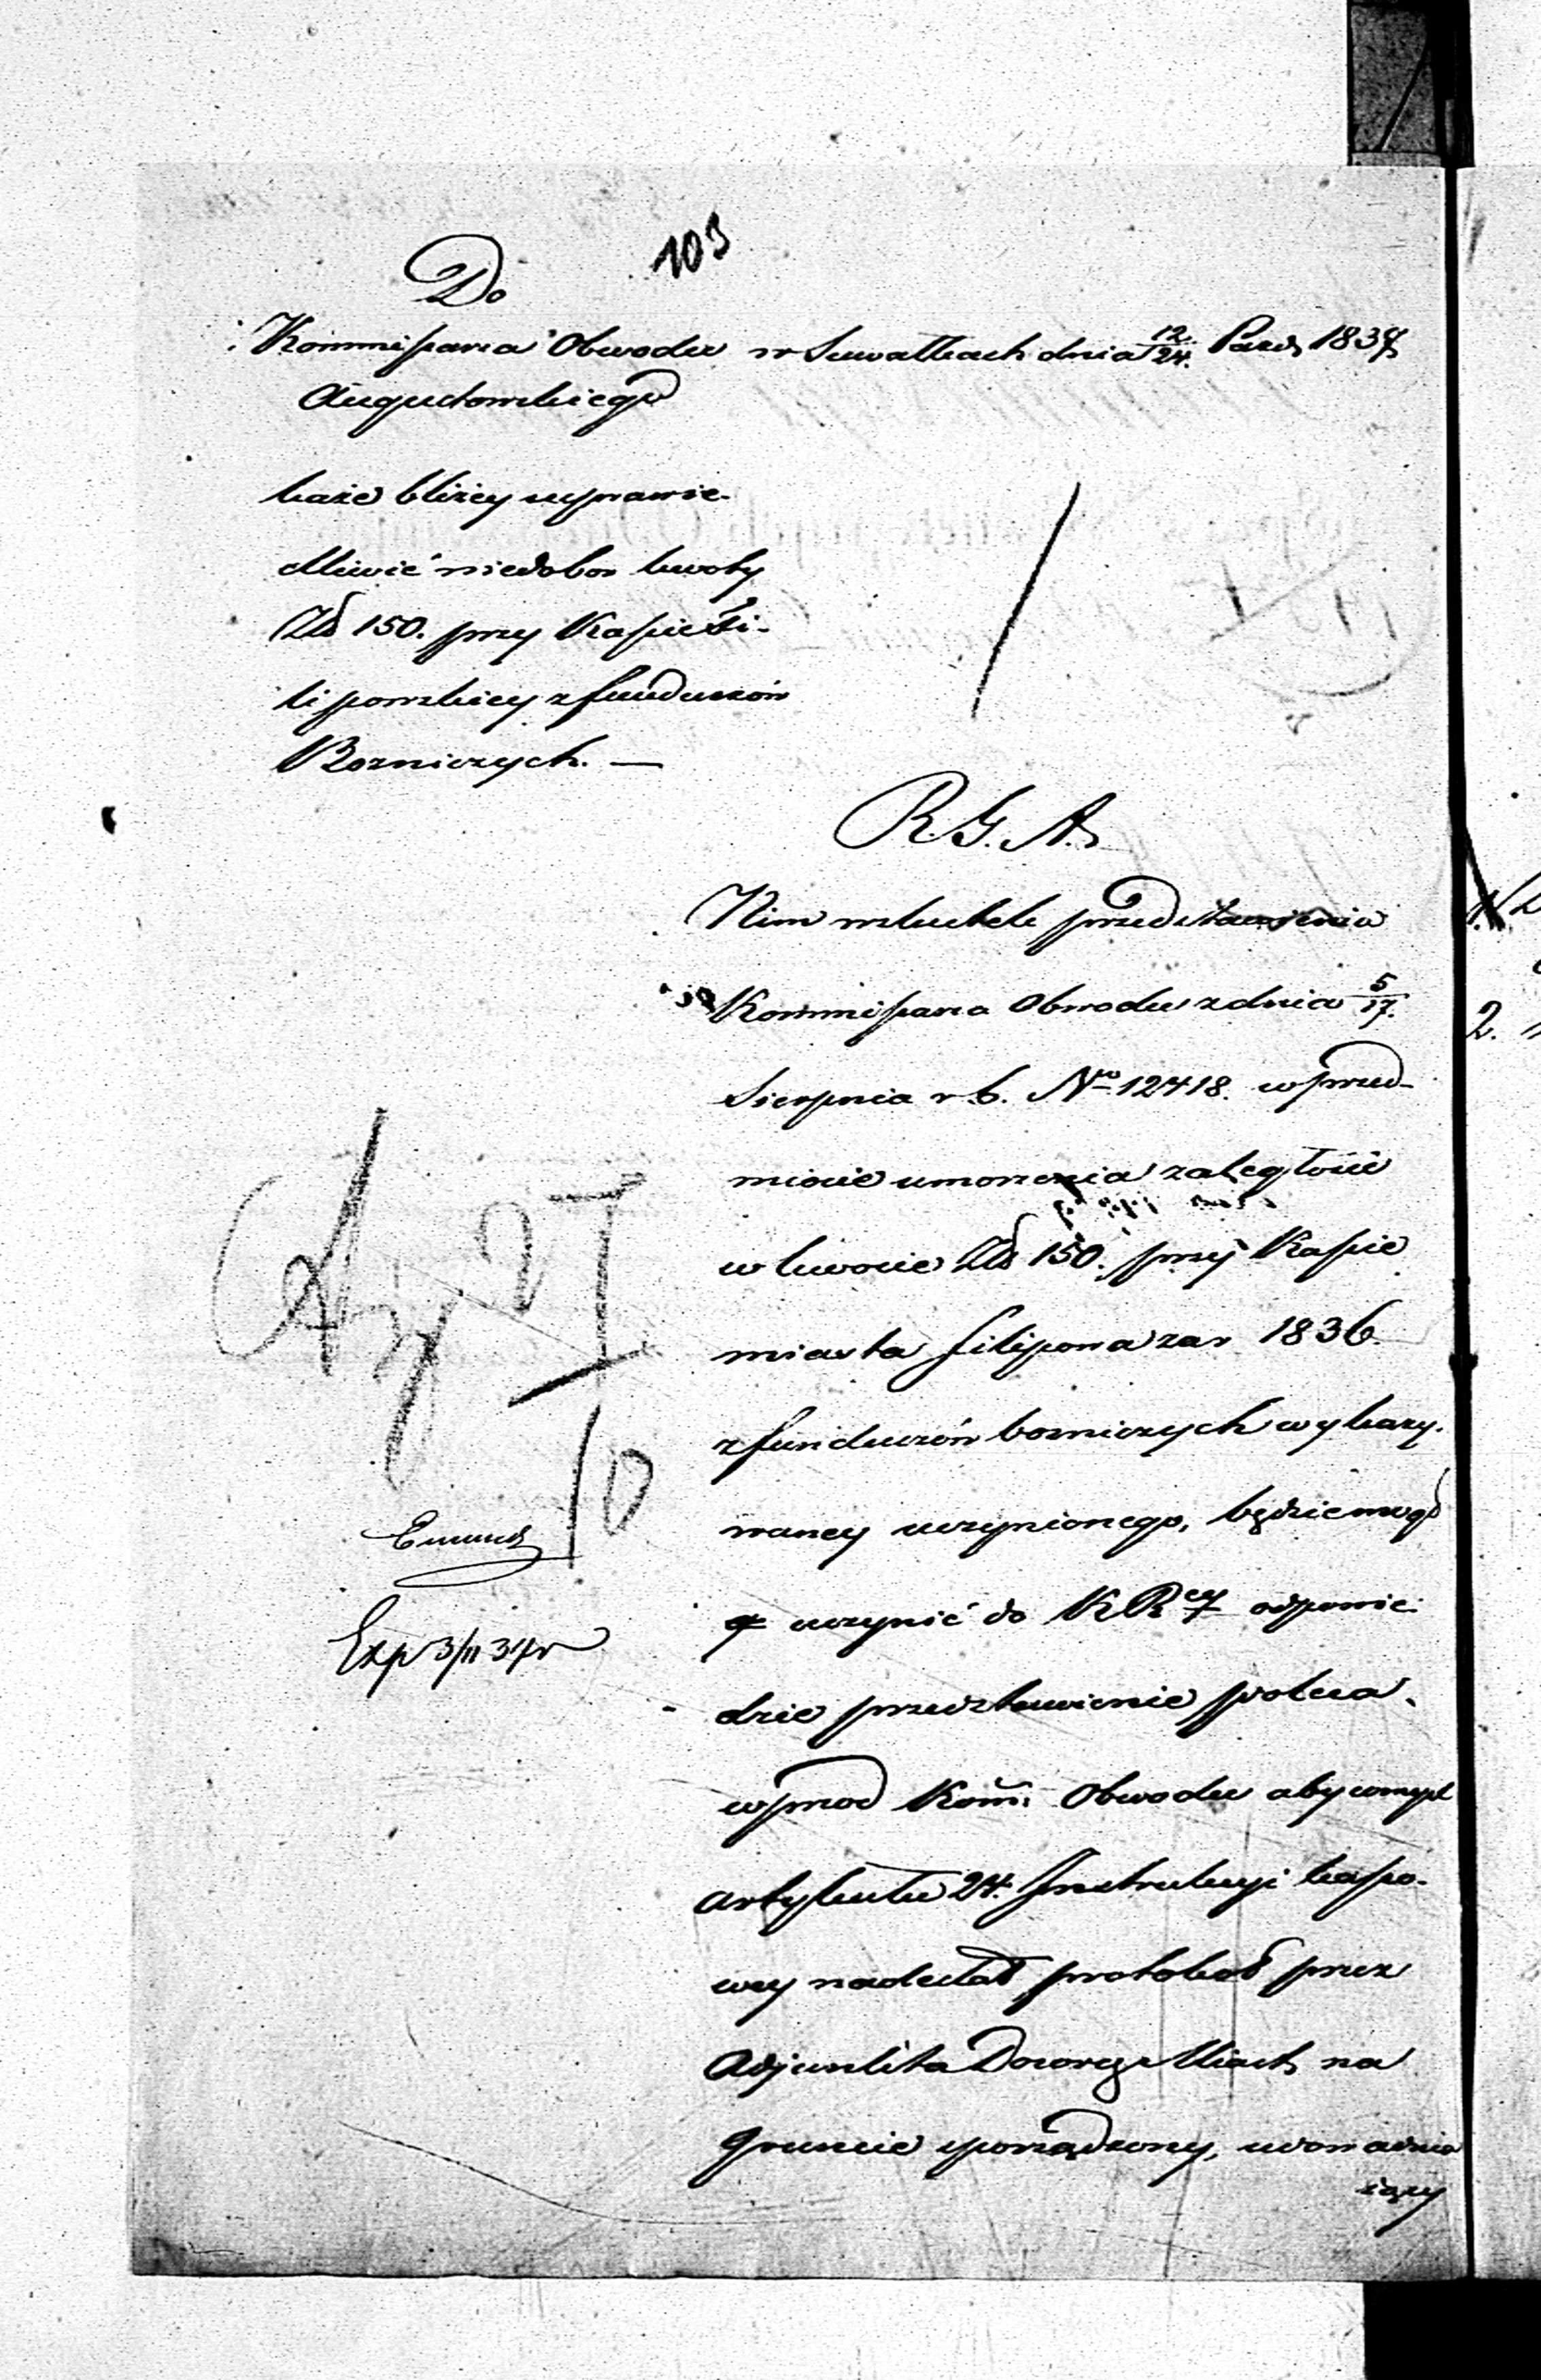 103
Do
Kommissarza Obwodu w Suwałkach dnia 12/24. Paźd. 1837
Augustowskiego
każe bliżey usprawie-
dliwić niedobor kwoty
Złp 150. przy Kassie Fi-
lipowskiey z funduszów
Bozniczych. —
R. G. A.
Nim w skutek przedstawienia
Kommissarza Obwodu z dnia 5/17.
Sierpnia r. b. No 12418. w przed-
miocie umorzenia zaległości
w kwocie Złp 150. przy Kassie
miasta Filipowa za r. 1836.
z funduszów bozniczych wykazy-
waney uczynionego, będzie mogło
uczynić do K R odpowie-
dzie przedstawienie poleca
wprzod Kom: Obwodu aby w myśl
artykułu 24. Instrukcyi kasso-
wey nadesłał protokół przez
Adjunkta Dozorcę Miast na
gruncie sporządzony, udowadnia
iący
Exp 3/11 37r
2.